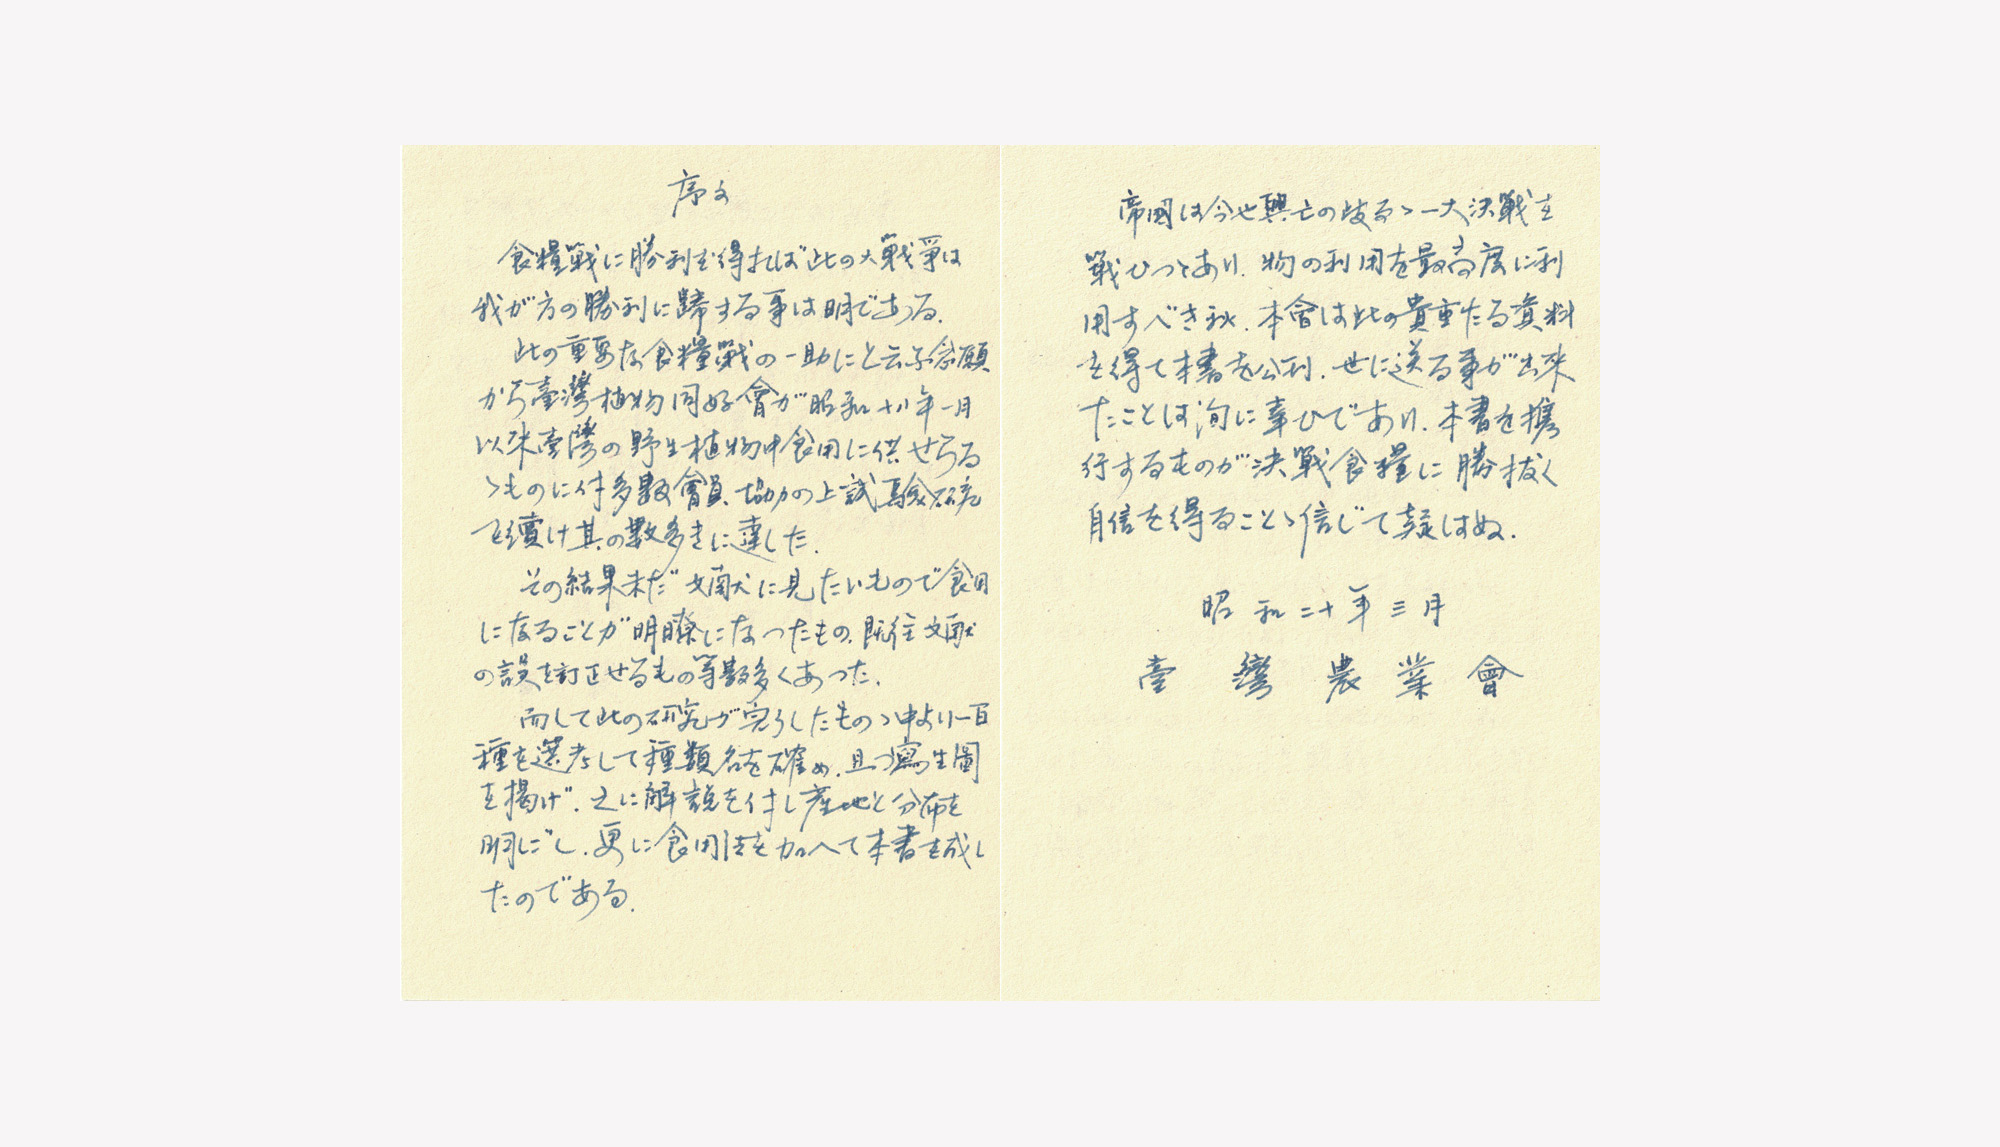 序文
食糧戦に勝利を得れば此の大戦爭は
我が方の勝利に歸する事は明である.
此の重要な食糧戦の一助にと云ふ念願
から臺灣植物同好會が昭和十八年一月
以来臺灣の野生植物中食用に供せらる
ゝものに付多数會員協力の上試験研究
を續け其の数多きに達した.
その結果未だ文献に見たいもので食用
になることが明瞭になったもの.既往文献
の誤を訂正せるもの等数多くあった.
而して此の研究が完了したものゝ中より一百
種を選考して種類名を確め.且つ寫生圖
を掲げ.之に解説を付し産地と分布を
明にし.更に食用法を加へて本書を成し
たのである.
帝國は今也興亡の岐るゝ一大決戦を
戦ひつゝあり.物の利用を最高度に利
用すべき秋.本會は此の貴重なる資料
を得て本書を公刊.世に送る事が出来
たことは洵に幸ひであり.本書を携
行するものが決戦食糧に勝抜く
自信を得ることゝ信じて疑はぬ.
昭和二十年三月
臺灣農業會